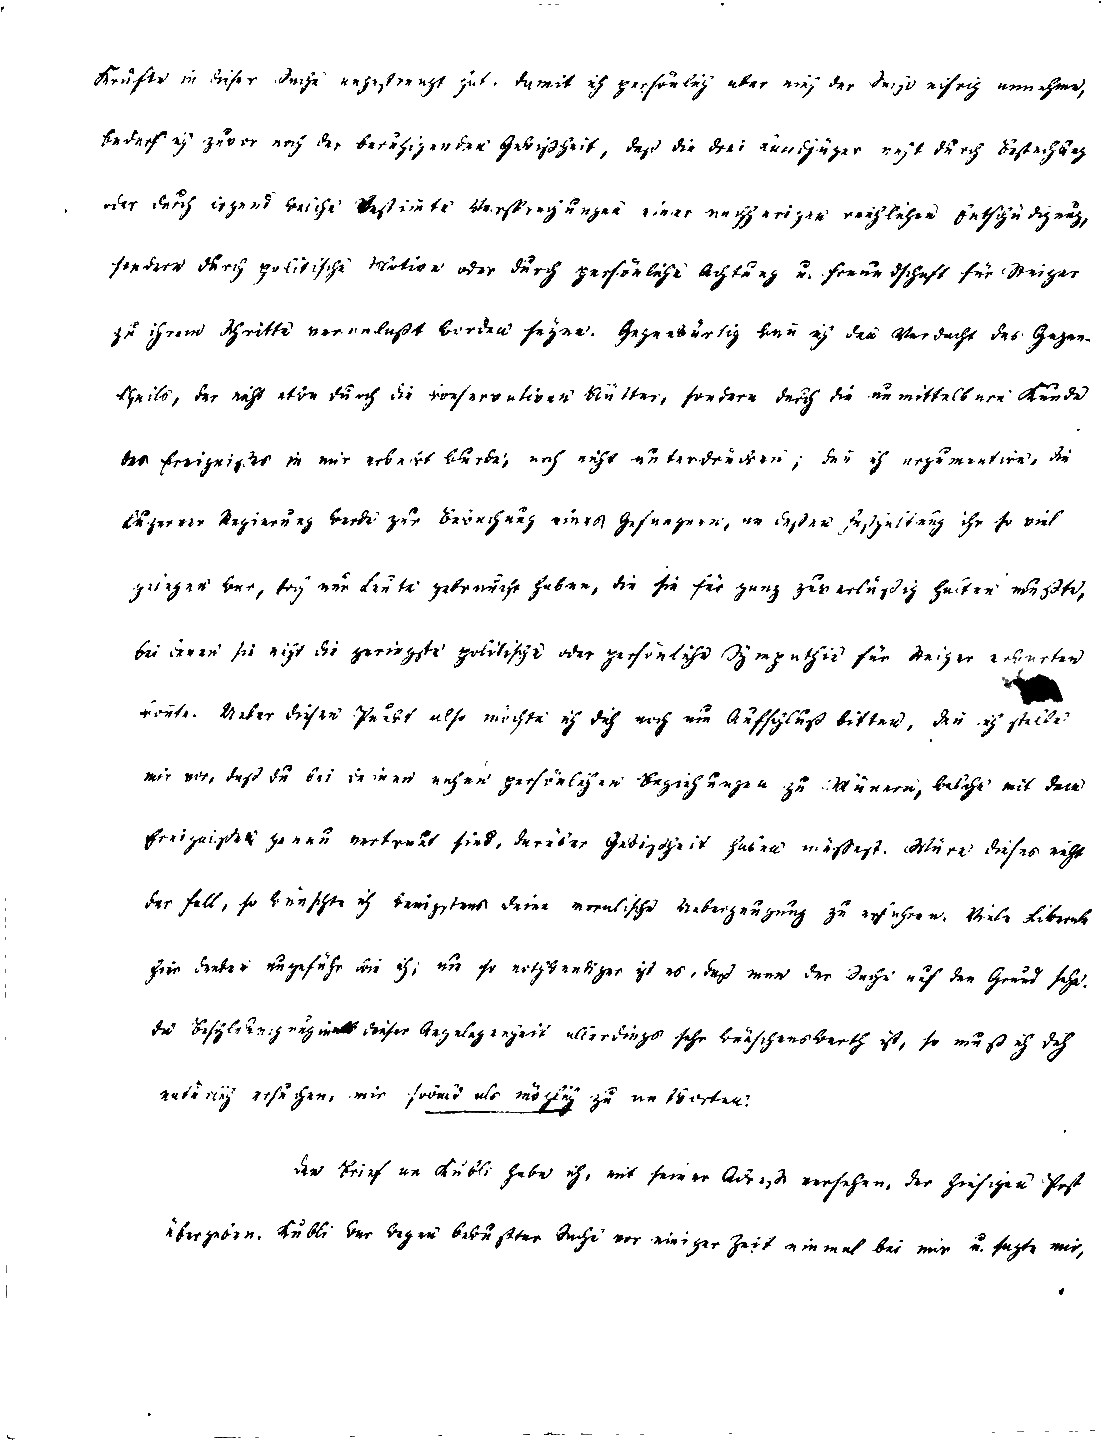 Kräfte in dieser Sache angestrengt hat. Damit ich persönlich aber mich der Sache eifrig annehme,
bedarf ich zuvor noch der beruhigenden Gewißheit, daß die drei Landjäger nicht durch Bestechung
oder durch irgend welche bestimte Versprechungen einer nachherigen reichlichen Entschädigung,
sondern durch politische Motive oder durch persönliche Achtung u. Freundschaft für Steiger
zu ihrem Schritte veranlaßt worden seyen. Gegenwärtig kan ich den Verdacht des Gegen-
theils, der nicht etwa durch die konservativen Blätter, sondern durch die unmittelbare Kunde
des Ereignißes in mir erweckt wurde, noch nicht unterdrücken; den ich argumentire, die
Luzerner Regierung werde zur Bewachung eines Gefangenen, an deßen Festhaltung ihr so viel
gelegen war, doch nur Leute gebraucht haben, die sie für ganz zuverläßig halten mußte,
bei denen sie nicht die geringste politische oder persönliche Sympathie für Steiger erwarten
konte. Ueber diesen Punkt also möchte ich dich noch um Aufschluß bitten, den ich stelle
mir vor, daß du bei deinen nahen persönlichen Beziehungen zu Mänern, welche mit dem
Ereignißen genau vertraut sind, darüber Gewißheit haben müßest. Wäre dieses nicht
der Fall, so wünschte ich wenigstens deine moralische Ueberzeugung zu erfahren. Viele Liberale
hier denken ungefähr wie ich; um so nothwendiger ist es, daß man der Sache auf den Grund sehe.
Da Beschleunigung in dieser Angelegenheit allerdings sehr wünschenswerth ist, so muß ich dich
natürlich ersuchen, mir sobald als möglich zu antworten.
Den Brief an Kubli habe ich, mit seiner Adreße versehen, der hiesigen Post
übergeben. Kubli war wegen bewußter Sache vor einiger Zeit einmal bei mir u. sagte mir,